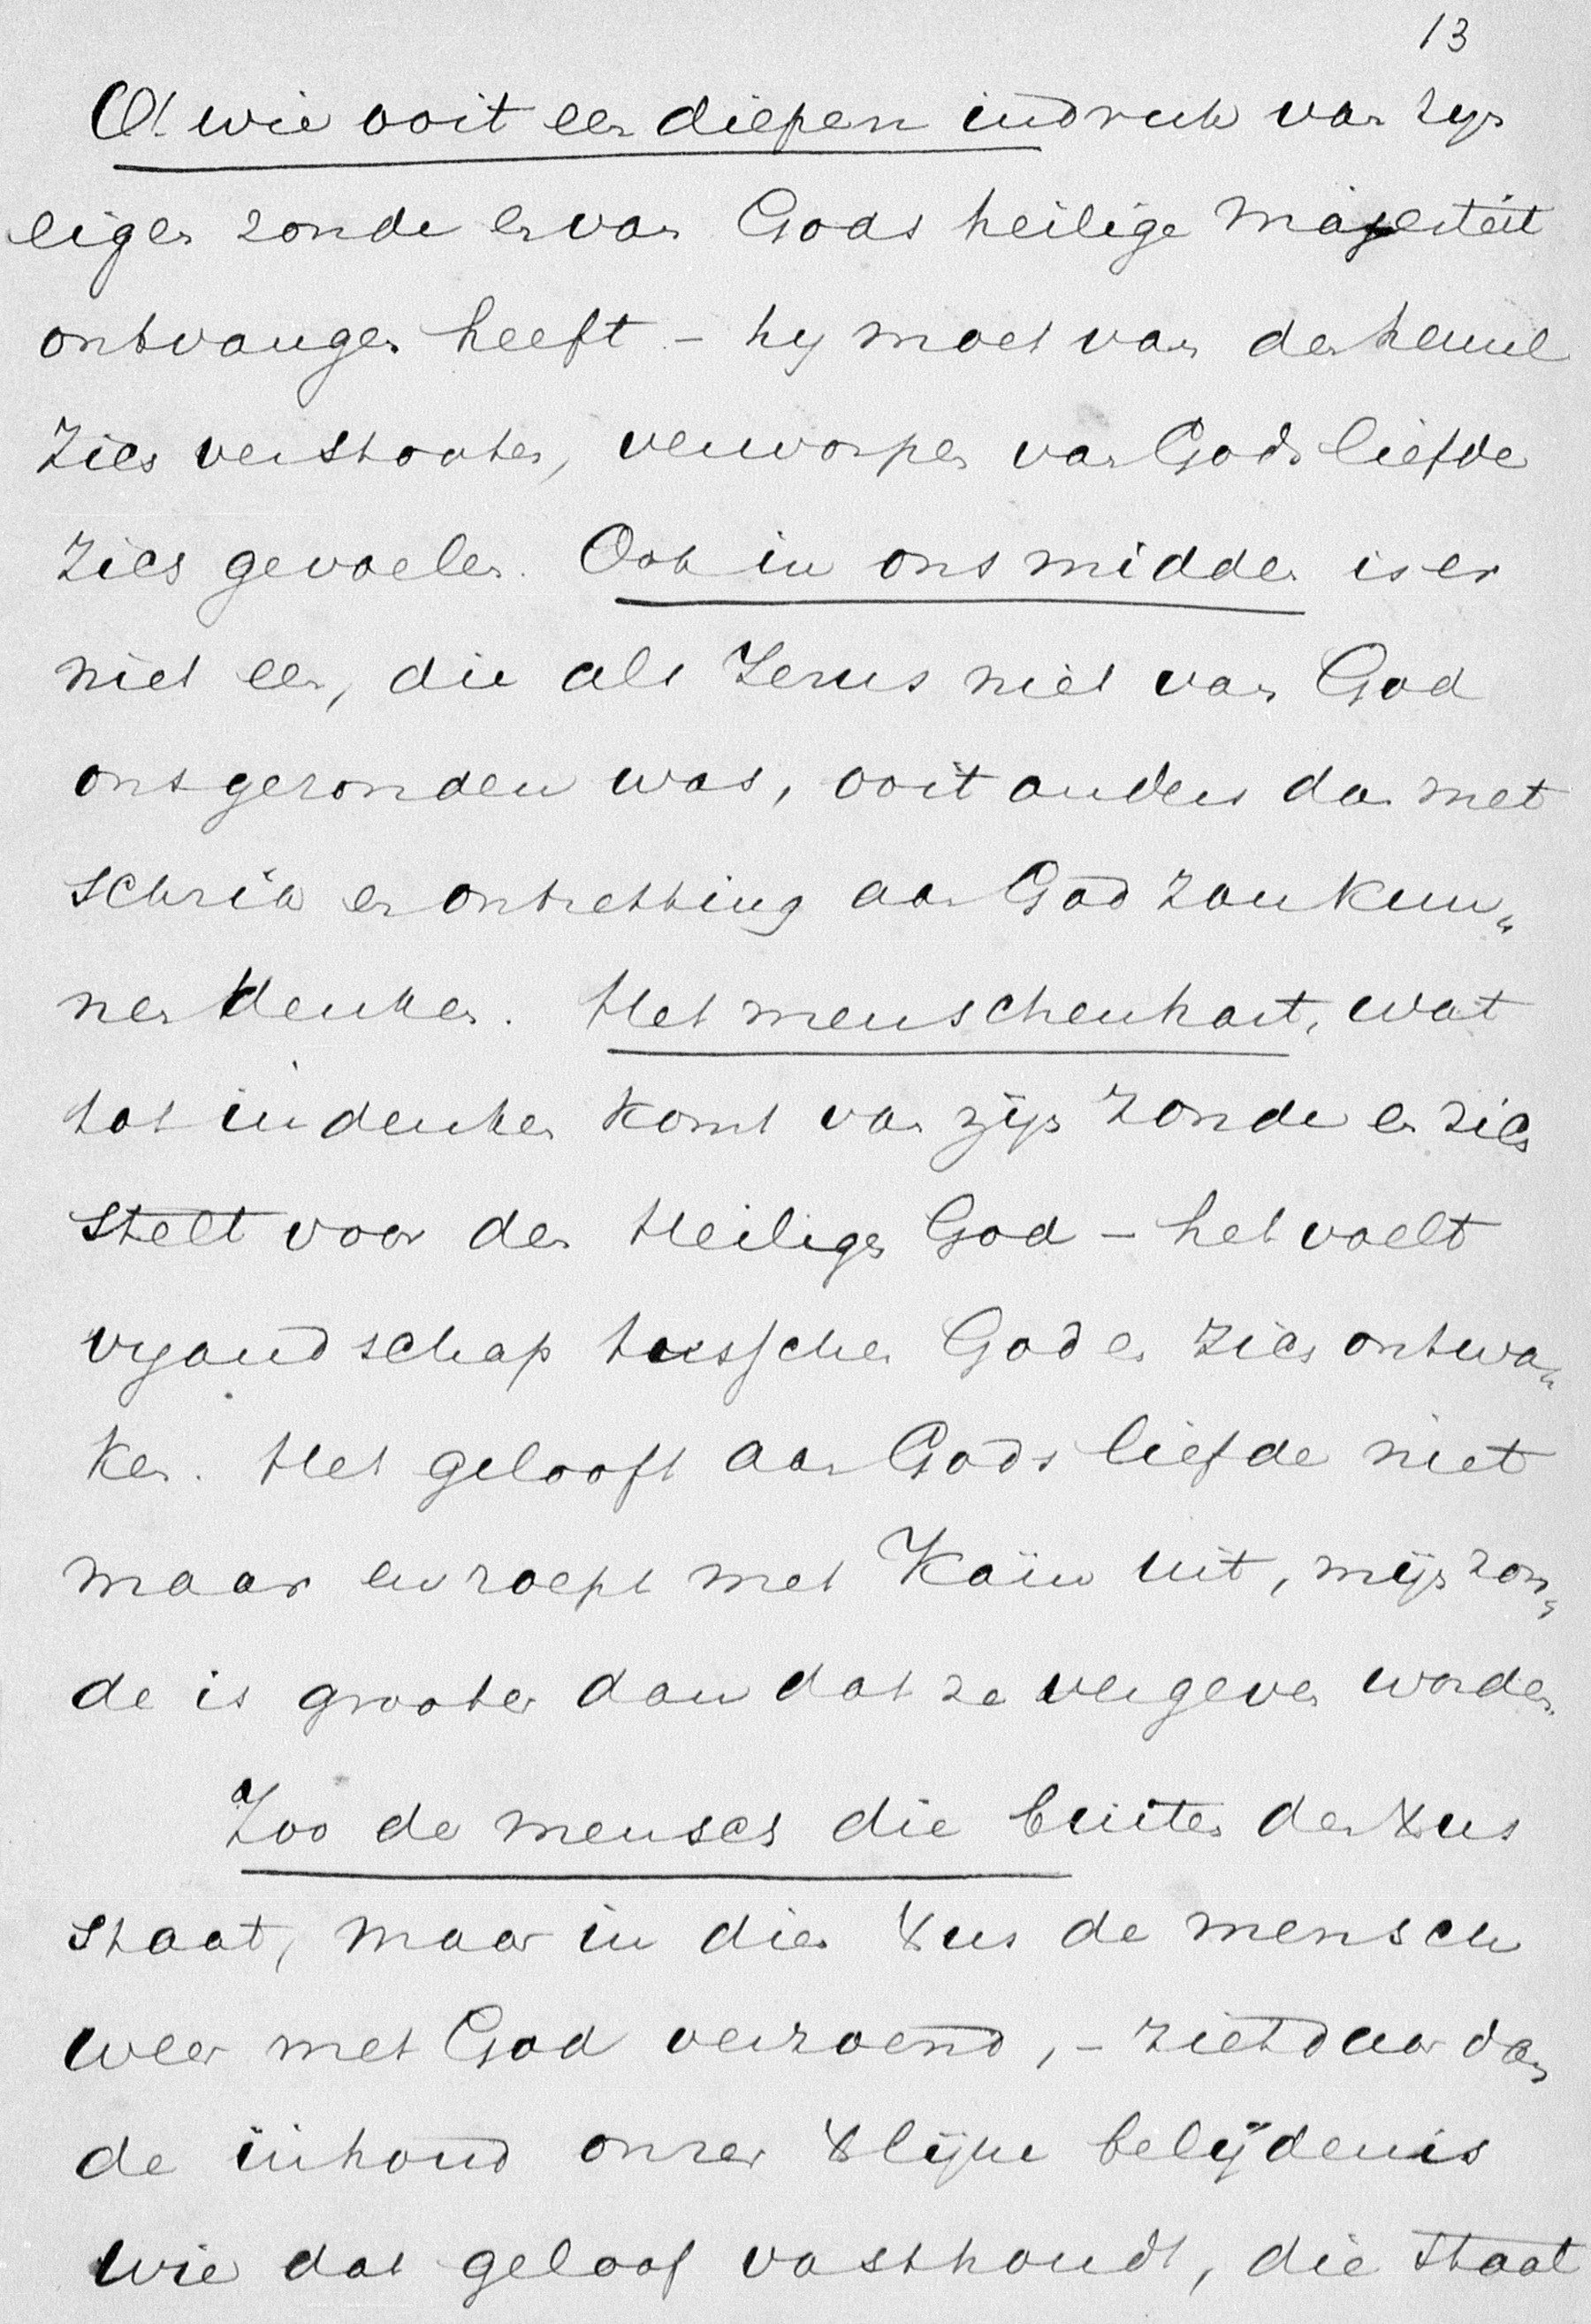 13
O! wie ooit een diepen indruk van zijn
eigen zonde en van Gods heilige Majesteit
ontvangen heeft – hij moet van den hemel
zich verstooten, verworpen van Gods liefde
zich gevoelen. Ook in ons midden is er
niet een, die als Jezus niet van God
ons gezonden was, ooit anders dan met
schrik en ontzetting aan God zou kun„
nen denken. Het menschenhart, wat
tot indenken komt van zijn zonde en zich
stelt voor den Heiligen God – het voelt
vyandschap tusschen God en zich ontwa„
ken. Het gelooft aan Gods liefde niet
maar en roept met Kaïn uit, mijn zon„
de is grooter dan dat ze vergeven worde.
Zoo de mensch die buiten den Xus
staat, maar in dien Xus de mensch
weer met God verzoend, – ziet daar dan
de inhoud onzer Xlijke belijdenis
wie dat geloof vasthoudt, die staat